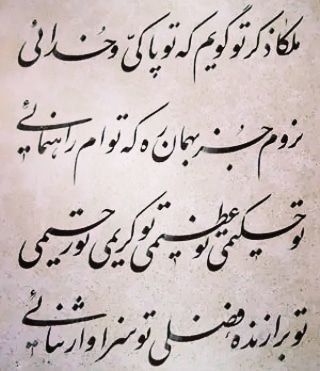 ملکا ذکر تو گویم که تو پاکیّ و خدائی
نروم جز بهمان ره که توام راهنمائی
تو حکیمی تو عظیمی تو کریمی تو رحیمی
تو برازنده فضلی تو سزاوار ثنائی